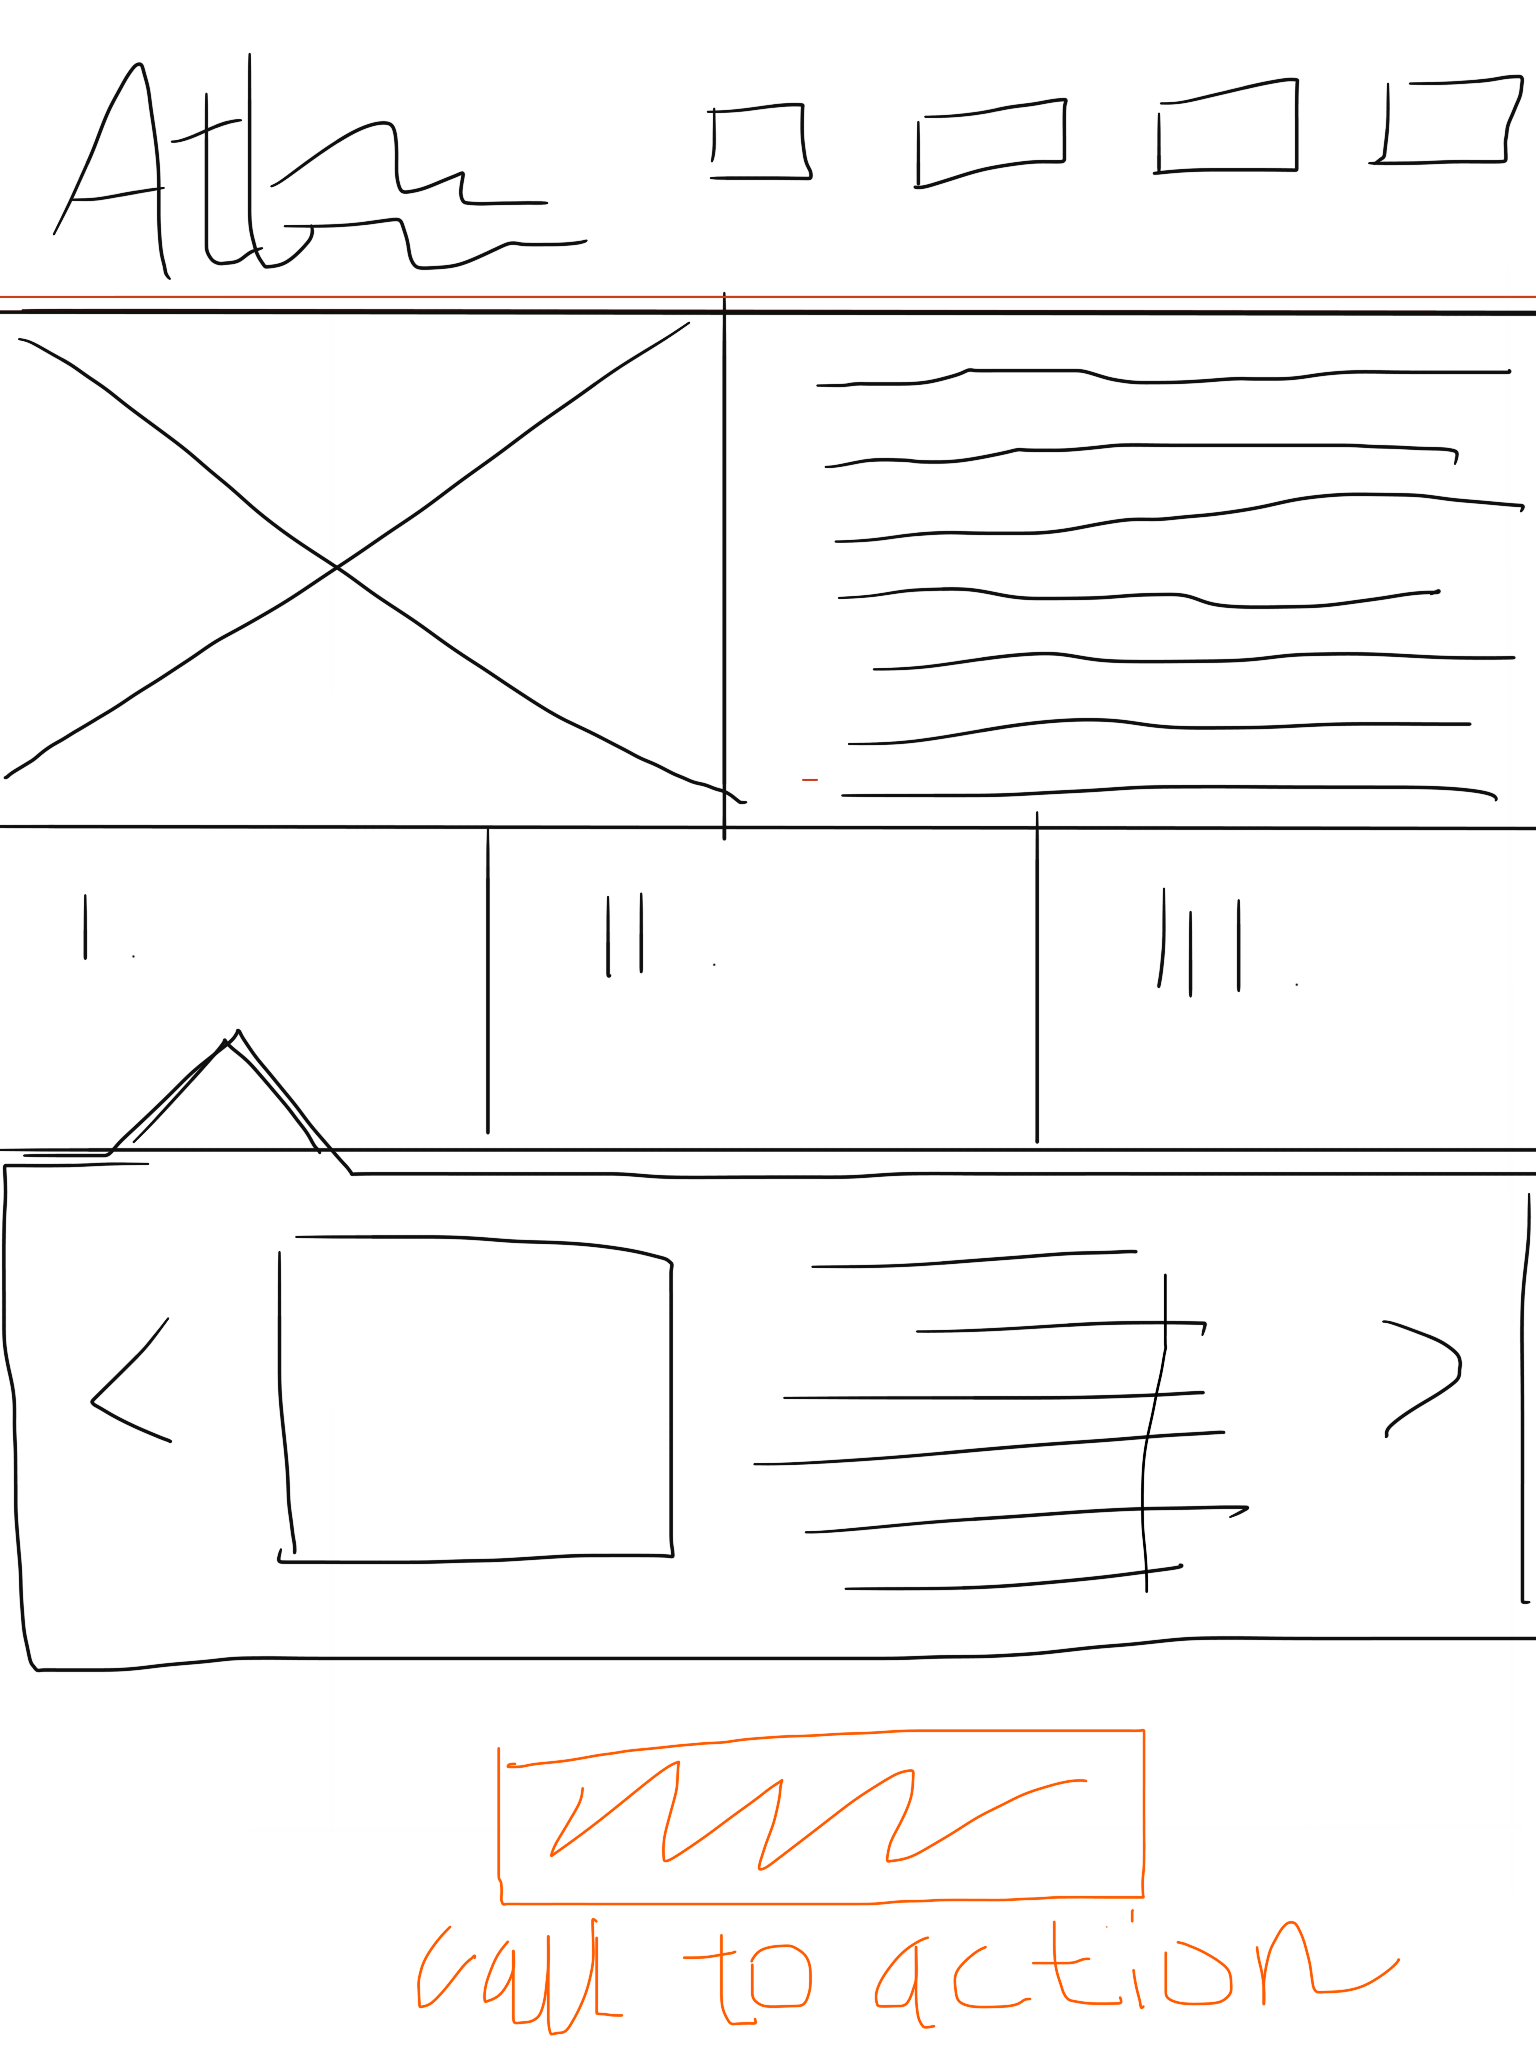 I
II
III
call to action